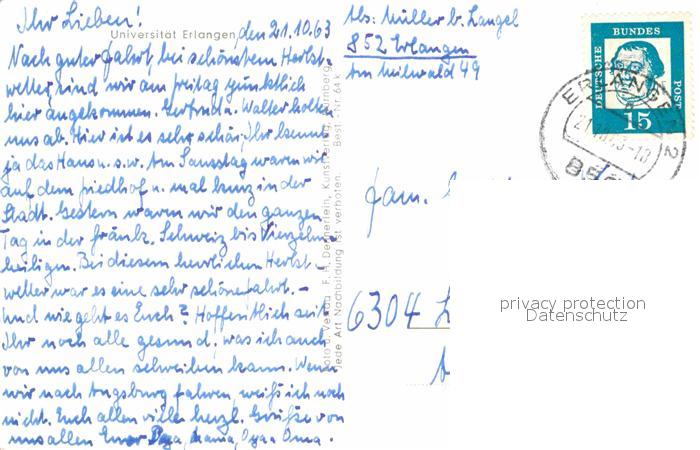 Ihr Lieben!
Universität Erlangen
den 21.10.63
Nach guter Fahrt, bei schönstem Herbst-
wetter, sind wir am Freitag pünktlich
hier angekommen. Gertrud u. Walter holten
uns ab. Hier ist es sehr schön, Ihr kennt
ja das Haus u.s.w. Am Samstag waren wir
auf dem Friedhof u. mal kurz in der
Stadt. Gestern waren wir den ganzen
Tag in der fränk. Schweiz bis Vierzehn-
heiligen. Bei diesem herrlichen Herbst-
wetter war es eine sehr schöne Fahrt. -
Und wie geht es Euch? Hoffentlich seit
Ihr noch alle gesund, was ich auch
von uns allen schreiben kann. Wenn
wir nach Augsburg fahren, weiß ich noch
nicht. Euch allen viele herzl. Grüße von
uns allen Euer Oma.
Foto u. Verlag F. H. Dennerlein, Kunstverlag, Nürnberg
Jede Art Nachbildung ist verboten. Best.-Nr. 64 k
Abs: Müller b. Langel
852 Erlangen
Am Meilwald 49
DEUTSCHE BUNDES POST
15
ERLANGEN 2
Fam.
6304 L
privacy protection
Datenschutz